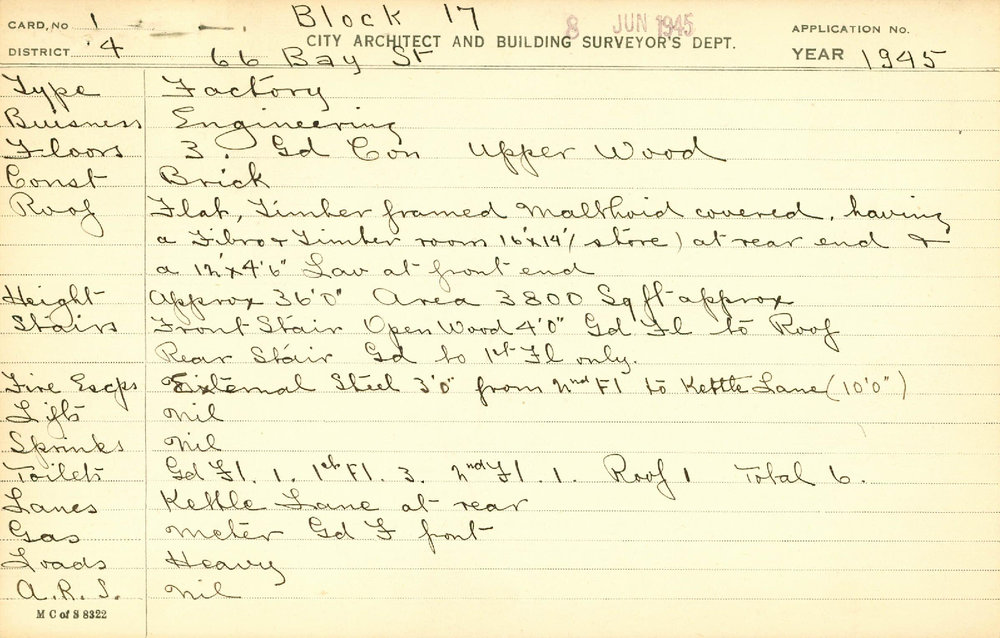 CARD, No 1 Block 17 8 JUN 1945 APPLICATION No.
CITY ARCHITECT AND BUILDING SURVEYOR'S DEPT.
DISTRICT 4 66 Bay St YEAR 1945
Type Factory
Buisness Engineering
Floors 3. Gd Con Upper Wood
Const Brick
Roof Flat, Timber framed Malthoid covered, having
a Fibro & Timber room 16'x14' (store) at rear end &
a 12'x4'6" Lav at front end
Height approx 36'0" Area 3800 Sq ft approx
Stairs Front Stair Open Wood 4'0" Gd Fl to Roof
Rear Stair Gd to 1st Fl only.
Fire Escps External Steel 3'0" from 2nd Fl to Kettle Lane (10'0")
Lifts Nil
Sprinks Nil
Toilets Gd Fl. 1. 1st Fl. 3. 2nd Fl. 1. Roof 1 Total 6.
Lanes Kettle Lane at rear
Gas Meter Gd F front
Loads Heavy
A.R.S. Nil
M C of S 8322